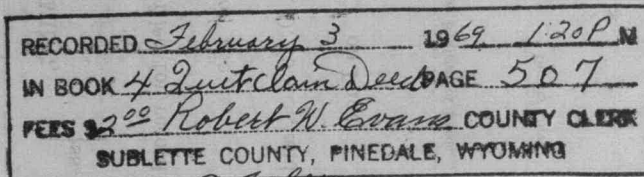 RECORDED February 3 1969 1:20 P M
IN BOOK 4 Quitclaim Deed PAGE 507
FEES $2.00 Robert W. Evans COUNTY CLERK
SUBLETTE COUNTY, PINEDALE, WYOMING